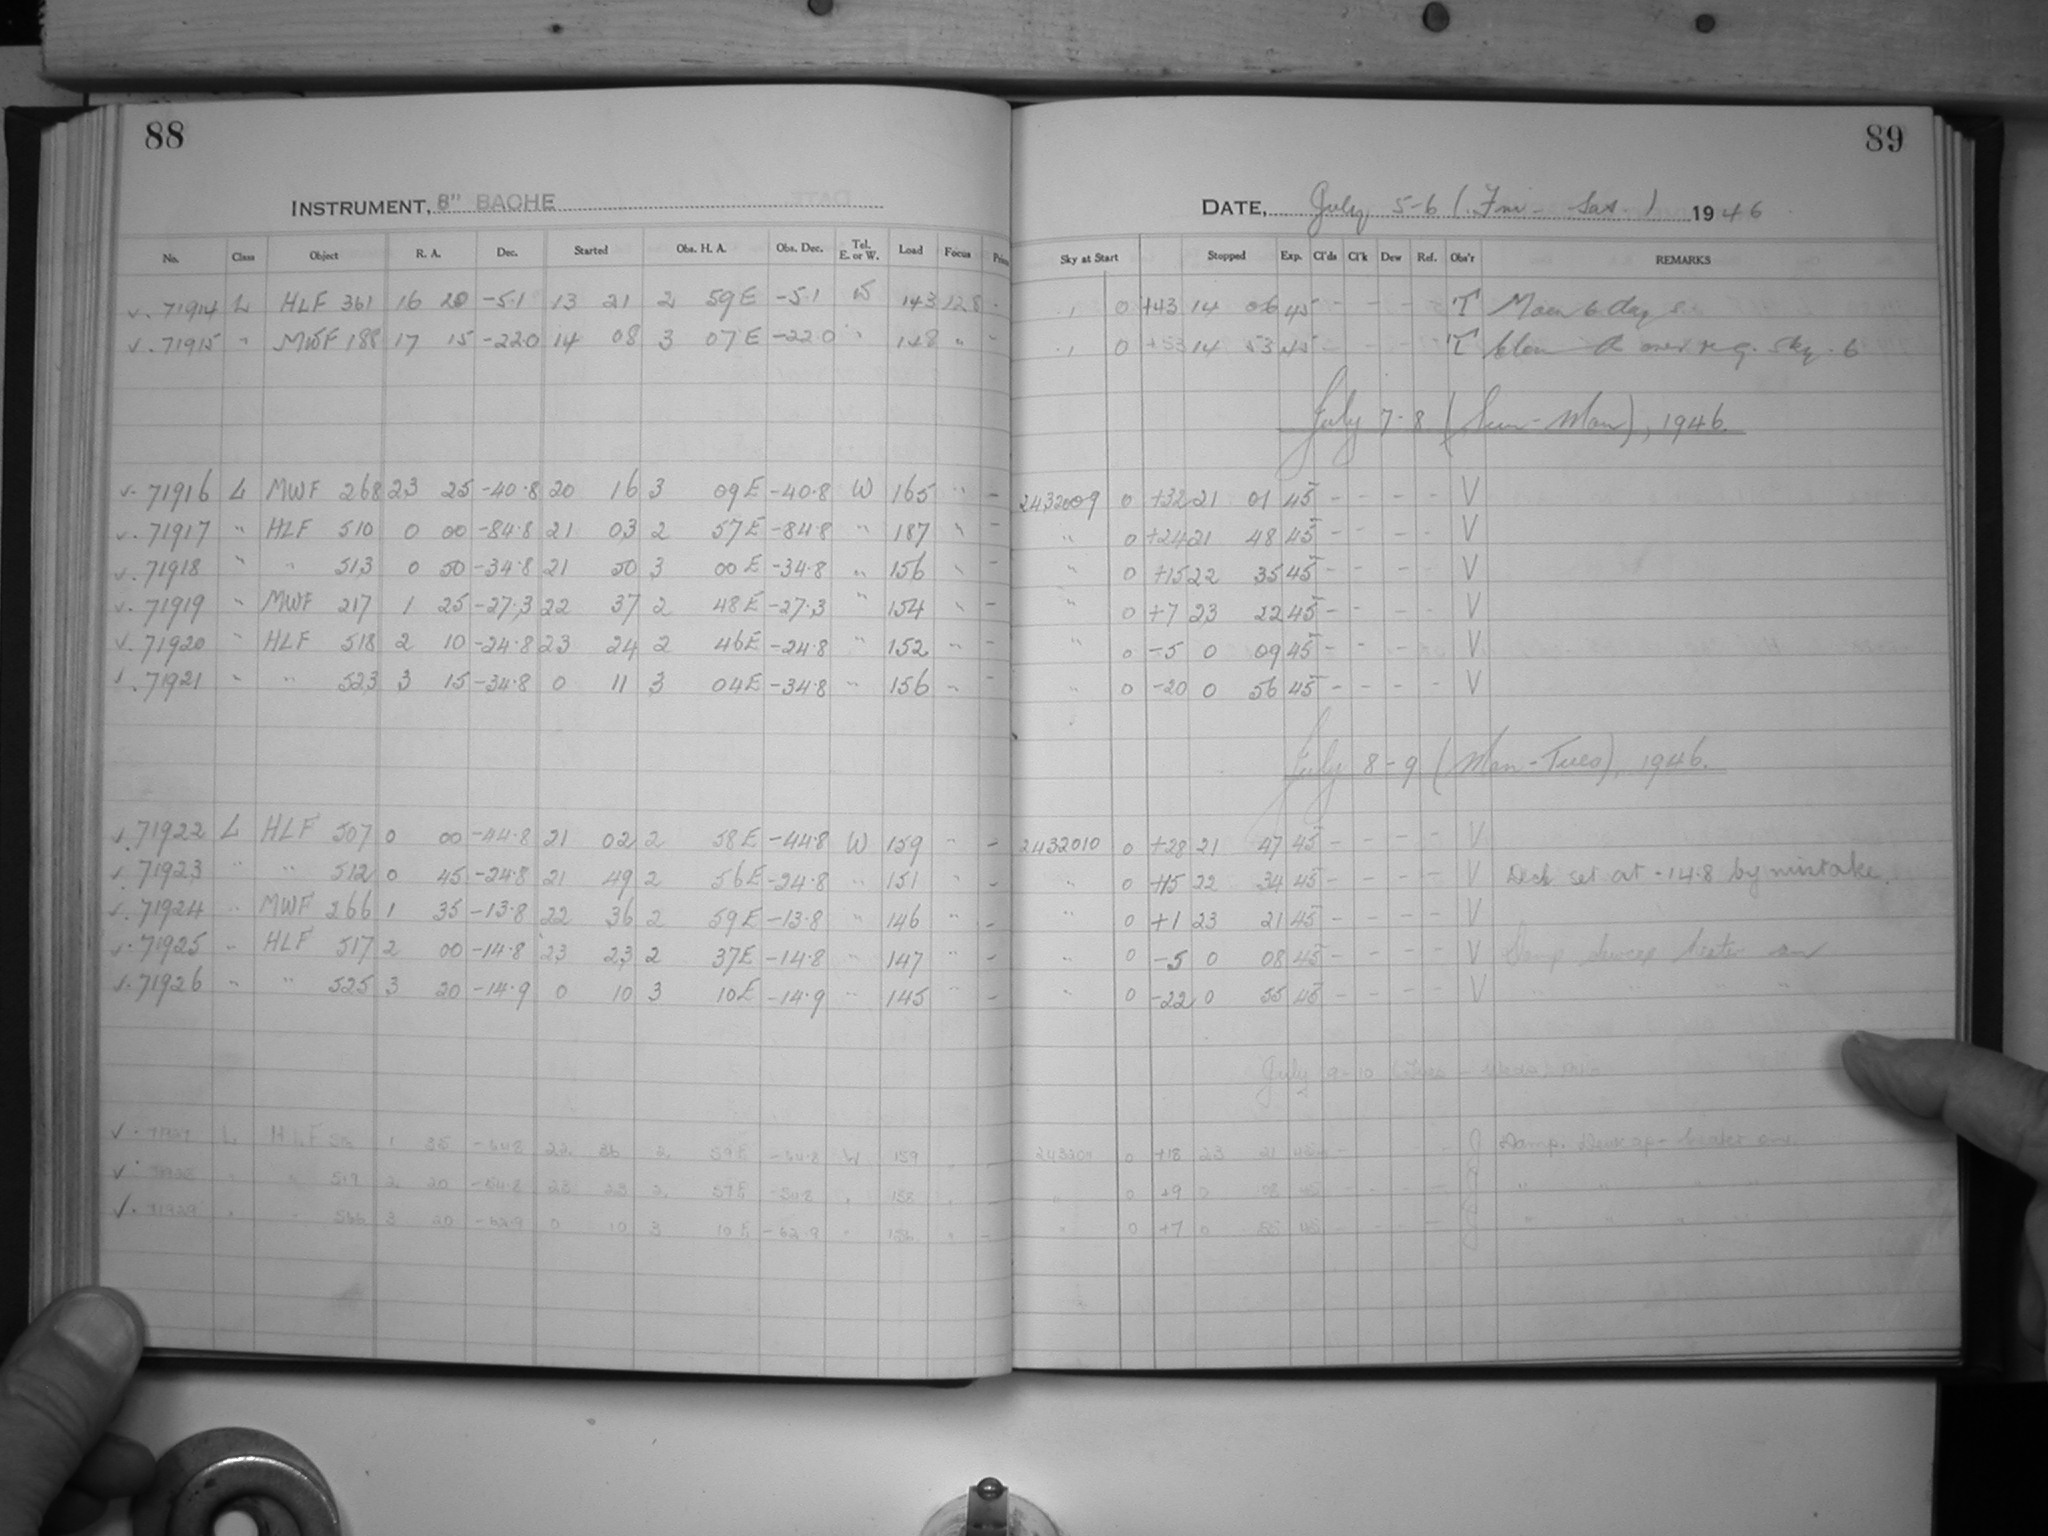 88
89
INSTRUMENT, 8" BACHE
DATE, July 5-6 (Fri - Sat.) 1946
No. Class Object R. A. Dec. Started Obs. H. A. Obs. Dec. Tel. E. or W. Load Focus
Sky at Start Stopped Exp. Cl'ds Cl'k Dew Ref. Obs'r REMARKS
v. 71914 L HLF 361 16 20 -5.1 13 21 2 59 E -5.1 W 143 12.8 0 +43 14 06 45 - - - - T Moon 6 days
v. 71915 " MWF 188 17 15 -22.0 14 08 3 07 E -22.0 " 148 " - 0 +53 14 53 45 - - - - T
July 7-8 (Sun-Mon), 1946.
v. 71916 L MWF 268 23 25 -40.8 20 16 3 09 E -40.8 W 165 " - 2432009 0 +32 21 01 45 - - - - V
v. 71917 " HLF 510 0 00 -84.8 21 03 2 57 E -84.8 " 187 " - " 0 +24 21 48 45 - - - - V
v. 71918 " " 513 0 50 -34.8 21 50 3 00 E -34.8 " 156 " - " 0 +15 22 35 45 - - - - V
v. 71919 " MWF 217 1 25 -27.3 22 37 2 48 E -27.3 " 154 " - " 0 +7 23 22 45 - - - - V
v. 71920 " HLF 518 2 10 -24.8 23 24 2 46 E -24.8 " 152 " - " 0 -5 0 09 45 - - - - V
v. 71921 " " 523 3 15 -34.8 0 11 3 04 E -34.8 " 156 " - " 0 -20 0 56 45 - - - - V
July 8-9 (Mon-Tues), 1946.
v. 71922 L HLF 507 0 00 -44.8 21 02 2 58 E -44.8 W 159 " - 2432010 0 +28 21 47 45 - - - - V
v. 71923 " " 512 0 45 -24.8 21 49 2 56 E -24.8 " 151 " - " 0 +15 22 34 45 - - - - V Decl set at -14.8 by mistake.
v. 71924 " MWF 266 1 35 -13.8 22 36 2 59 E -13.8 " 146 " - " 0 +1 23 21 45 - - - - V
v. 71925 " HLF 517 2 00 -14.8 23 23 2 37 E -14.8 " 147 " - " 0 -5 0 08 45 - - - - V Damp dewcap heater on
v. 71926 " " 525 3 20 -14.9 0 10 3 10 E -14.9 " 145 " - " 0 -22 0 55 45 - - - - V " " " "
July 9-10 (Tues - Weds)
v. L HLF 1 35 22 36 2 59 E W 159 " - 0 +18 23 21 45 - - - - J Damp. Dewcap heater on.
v. " " 519 2 20 -54.8 23 23 2 57 E -54.8 " 158 " - " 0 +9 0 08 45 - - - - J " " " "
v. 71929 " " 3 20 -62.9 0 10 3 10 E -62.9 " " - " 0 +7 0 55 45 - - - - J " " " "